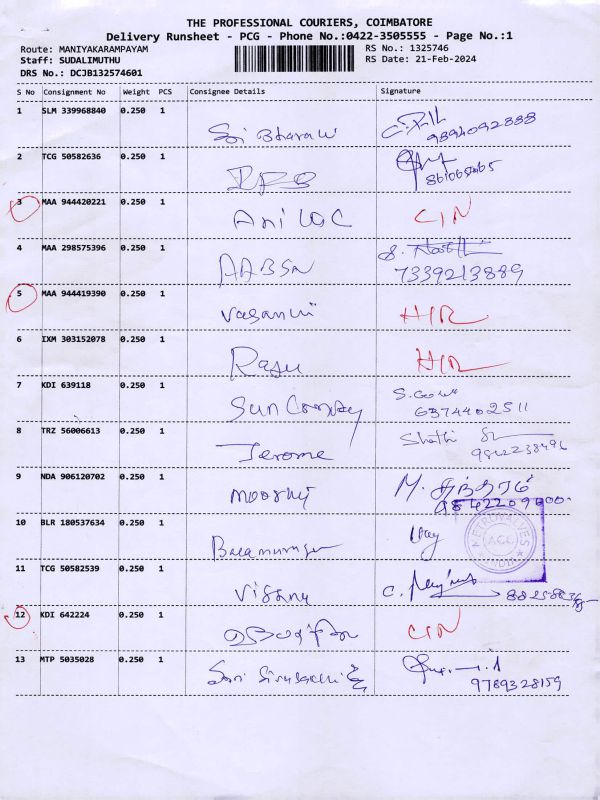 THE PROFESSIONAL COURIERS, COIMBATORE
Delivery Runsheet - PCG - Phone No.:0422-3505555 - Page No.:1
Route: MANIYAKARAMPAYAM RS No.: 1325746
Staff: SUDALIMUTHU RS Date: 21-Feb-2024
DRS No.: DCJB132574601
S No Consignment No Weight PCS Consignee Details Signature
1 SLM 339968840 0.250 1
Sri Bharani 9894092888
2 TCG 50582636 0.250 1
3 MAA 944420221 0.250 1
Ani LOC CIN
4 MAA 298575396 0.250 1
AABSN 7339213889
5 MAA 944419390 0.250 1
Vasanthi HIR
6 IXM 303152078 0.250 1
Rasu HIR
7 KDI 639118 0.250 1
Sun Company 6374402511
8 TRZ 56006613 0.250 1
Jerome Shathi 9842238496
9 NDA 906120702 0.250 1
Moorthy M.
10 BLR 180537634 0.250 1
Balamurugan
METROVALVES
A.C.C.
INDIA
11 TCG 50582539 0.250 1
12 KDI 642224 0.250 1
CIN
13 MTP 5035028 0.250 1
9789328159